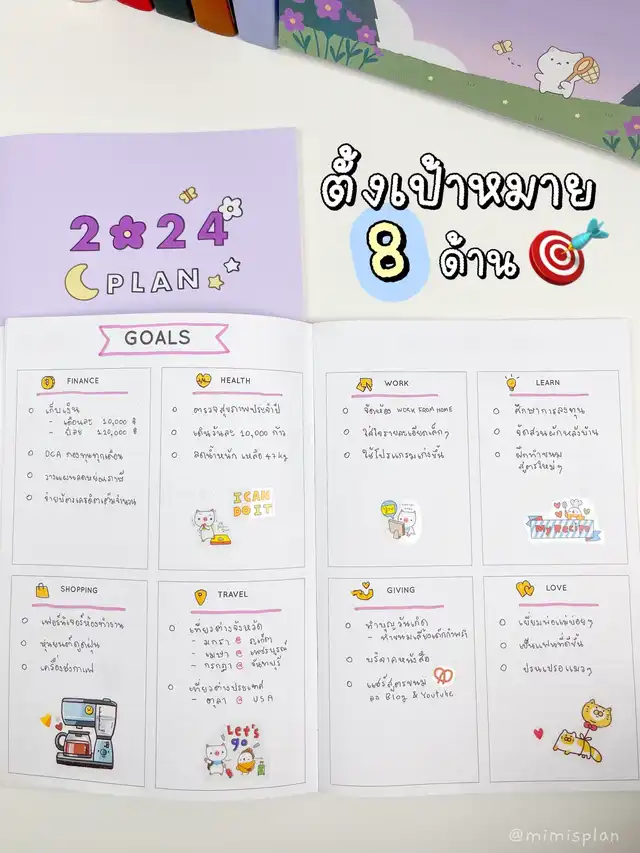 ตั้งเป้าหมาย
8 ด้าน
2024
PLAN
GOALS
FINANCE
เก็บเงิน
- เดือนละ 10,000 ฿
- ปีละ 120,000 ฿
DCA กองทุนทุกเดือน
วางแผนลดหย่อนภาษี
จ่ายบัตรเครดิตเต็มจำนวน
HEALTH
ตรวจสุขภาพประจำปี
เดินวันละ 10,000 ก้าว
ลดน้ำหนัก เหลือ 47 kg
I CAN
DO IT
WORK
จัดห้อง WORK FROM HOME
ใส่ใจรายละเอียดเล็กๆ
ใช้โปรแกรมเก่งขึ้น
LEARN
ศึกษาการลงทุน
จัดสวนผักหลังบ้าน
ฝึกทำขนม
สูตรใหม่ๆ
My Recipe
SHOPPING
เฟอร์นิเจอร์ห้องทำงาน
หุ่นยนต์ดูดฝุ่น
เครื่องชงกาแฟ
TRAVEL
เที่ยวต่างจังหวัด
- มกรา @ ภูเก็ต
- เมษา @ เพชรบูรณ์
- กรกฎา @ จันทบุรี
เที่ยวต่างประเทศ
- ตุลา @ USA
Let's
go
GIVING
ทำบุญวันเกิด
- ทำขนมเลี้ยงเด็กกำพร้า
บริจาคหนังสือ
แชร์สูตรขนม
ลง Blog & Youtube
LOVE
เยี่ยมพ่อแม่บ่อยๆ
เป็นแฟนที่ดีขึ้น
ปรนเปรอแมวๆ
@mimisplan